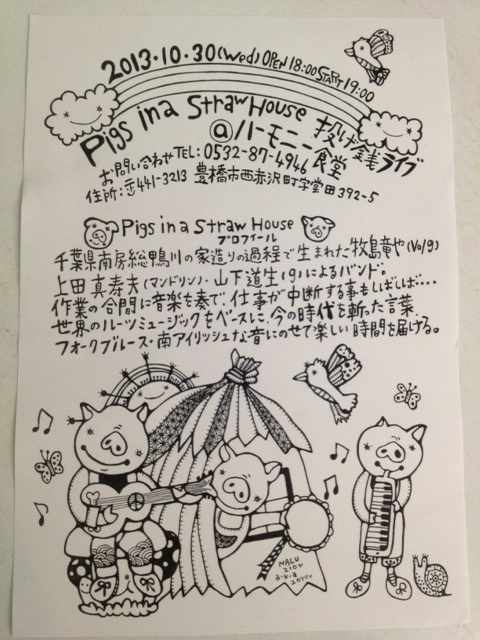 2013・10・30(Wed) OPEN 18:00 START 19:00
Pigs in a Straw House 投げ銭ライブ
@ハーモニー食堂
お問い合わせ TEL: 0532-87-4946
住所: 〒441-3213 豊橋市西赤沢町字堂田392-5
Pigs in a Straw House
プロフィール
千葉県南房総鴨川の家造りの過程で生まれた牧島竜也(Vo/g)
上田真寿夫(マンドリン)・山下道生(g)によるバンド。
作業の合間に音楽を奏で、仕事が中断する事もしばしば…
世界のルーツミュージックをベースに、今の時代を斬った言葉、
フォークブルース・南アイリッシュな音にのせて楽しい時間を届ける。
NALU
ZION
a.k.a